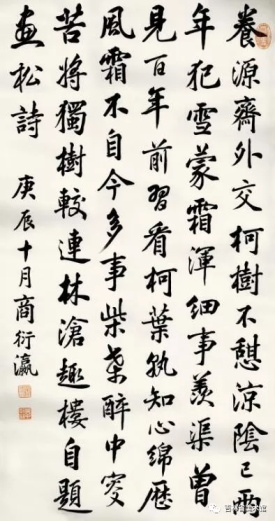 養源齋外交柯樹不憩涼陰已兩
年犯雪蒙霜渾細事羨渠曾
見百年前習看柯葉孰知心綿歷
風霜不自今多事柴桑醉中叟
苦將獨樹較連林滄趣樓自題
畫松詩
庚辰十月商衍瀛